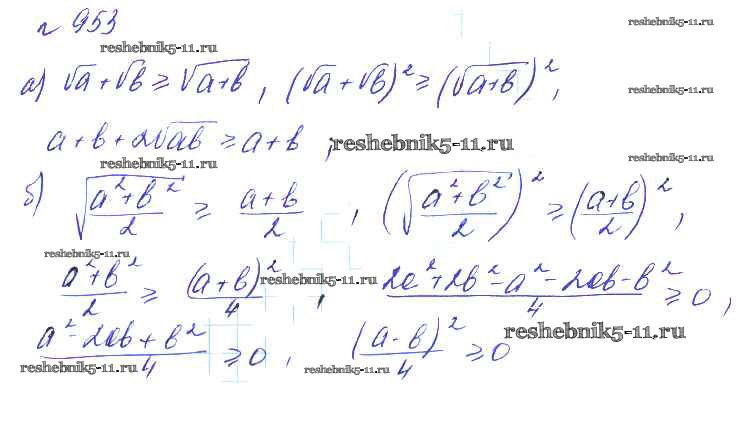 № 953
reshebnik5-11.ru
reshebnik5-11.ru
а) √a + √b ≥ √(a+b), (√a + √b)² ≥ (√(a+b))²,
reshebnik5-11.ru
a + b + 2√ab ≥ a + b;
reshebnik5-11.ru
reshebnik5-11.ru
reshebnik5-11.ru
б) √((a²+b²)/2) ≥ (a+b)/2, (√((a²+b²)/2))² ≥ ((a+b)/2)²,
reshebnik5-11.ru
(a²+b²)/2 ≥ (a+b)²/4, (2a²+2b²-a²-2ab-b²)/4 ≥ 0,
reshebnik5-11.ru
reshebnik5-11.ru
(a²-2ab+b²)/4 ≥ 0, (a-b)²/4 ≥ 0
reshebnik5-11.ru
reshebnik5-11.ru